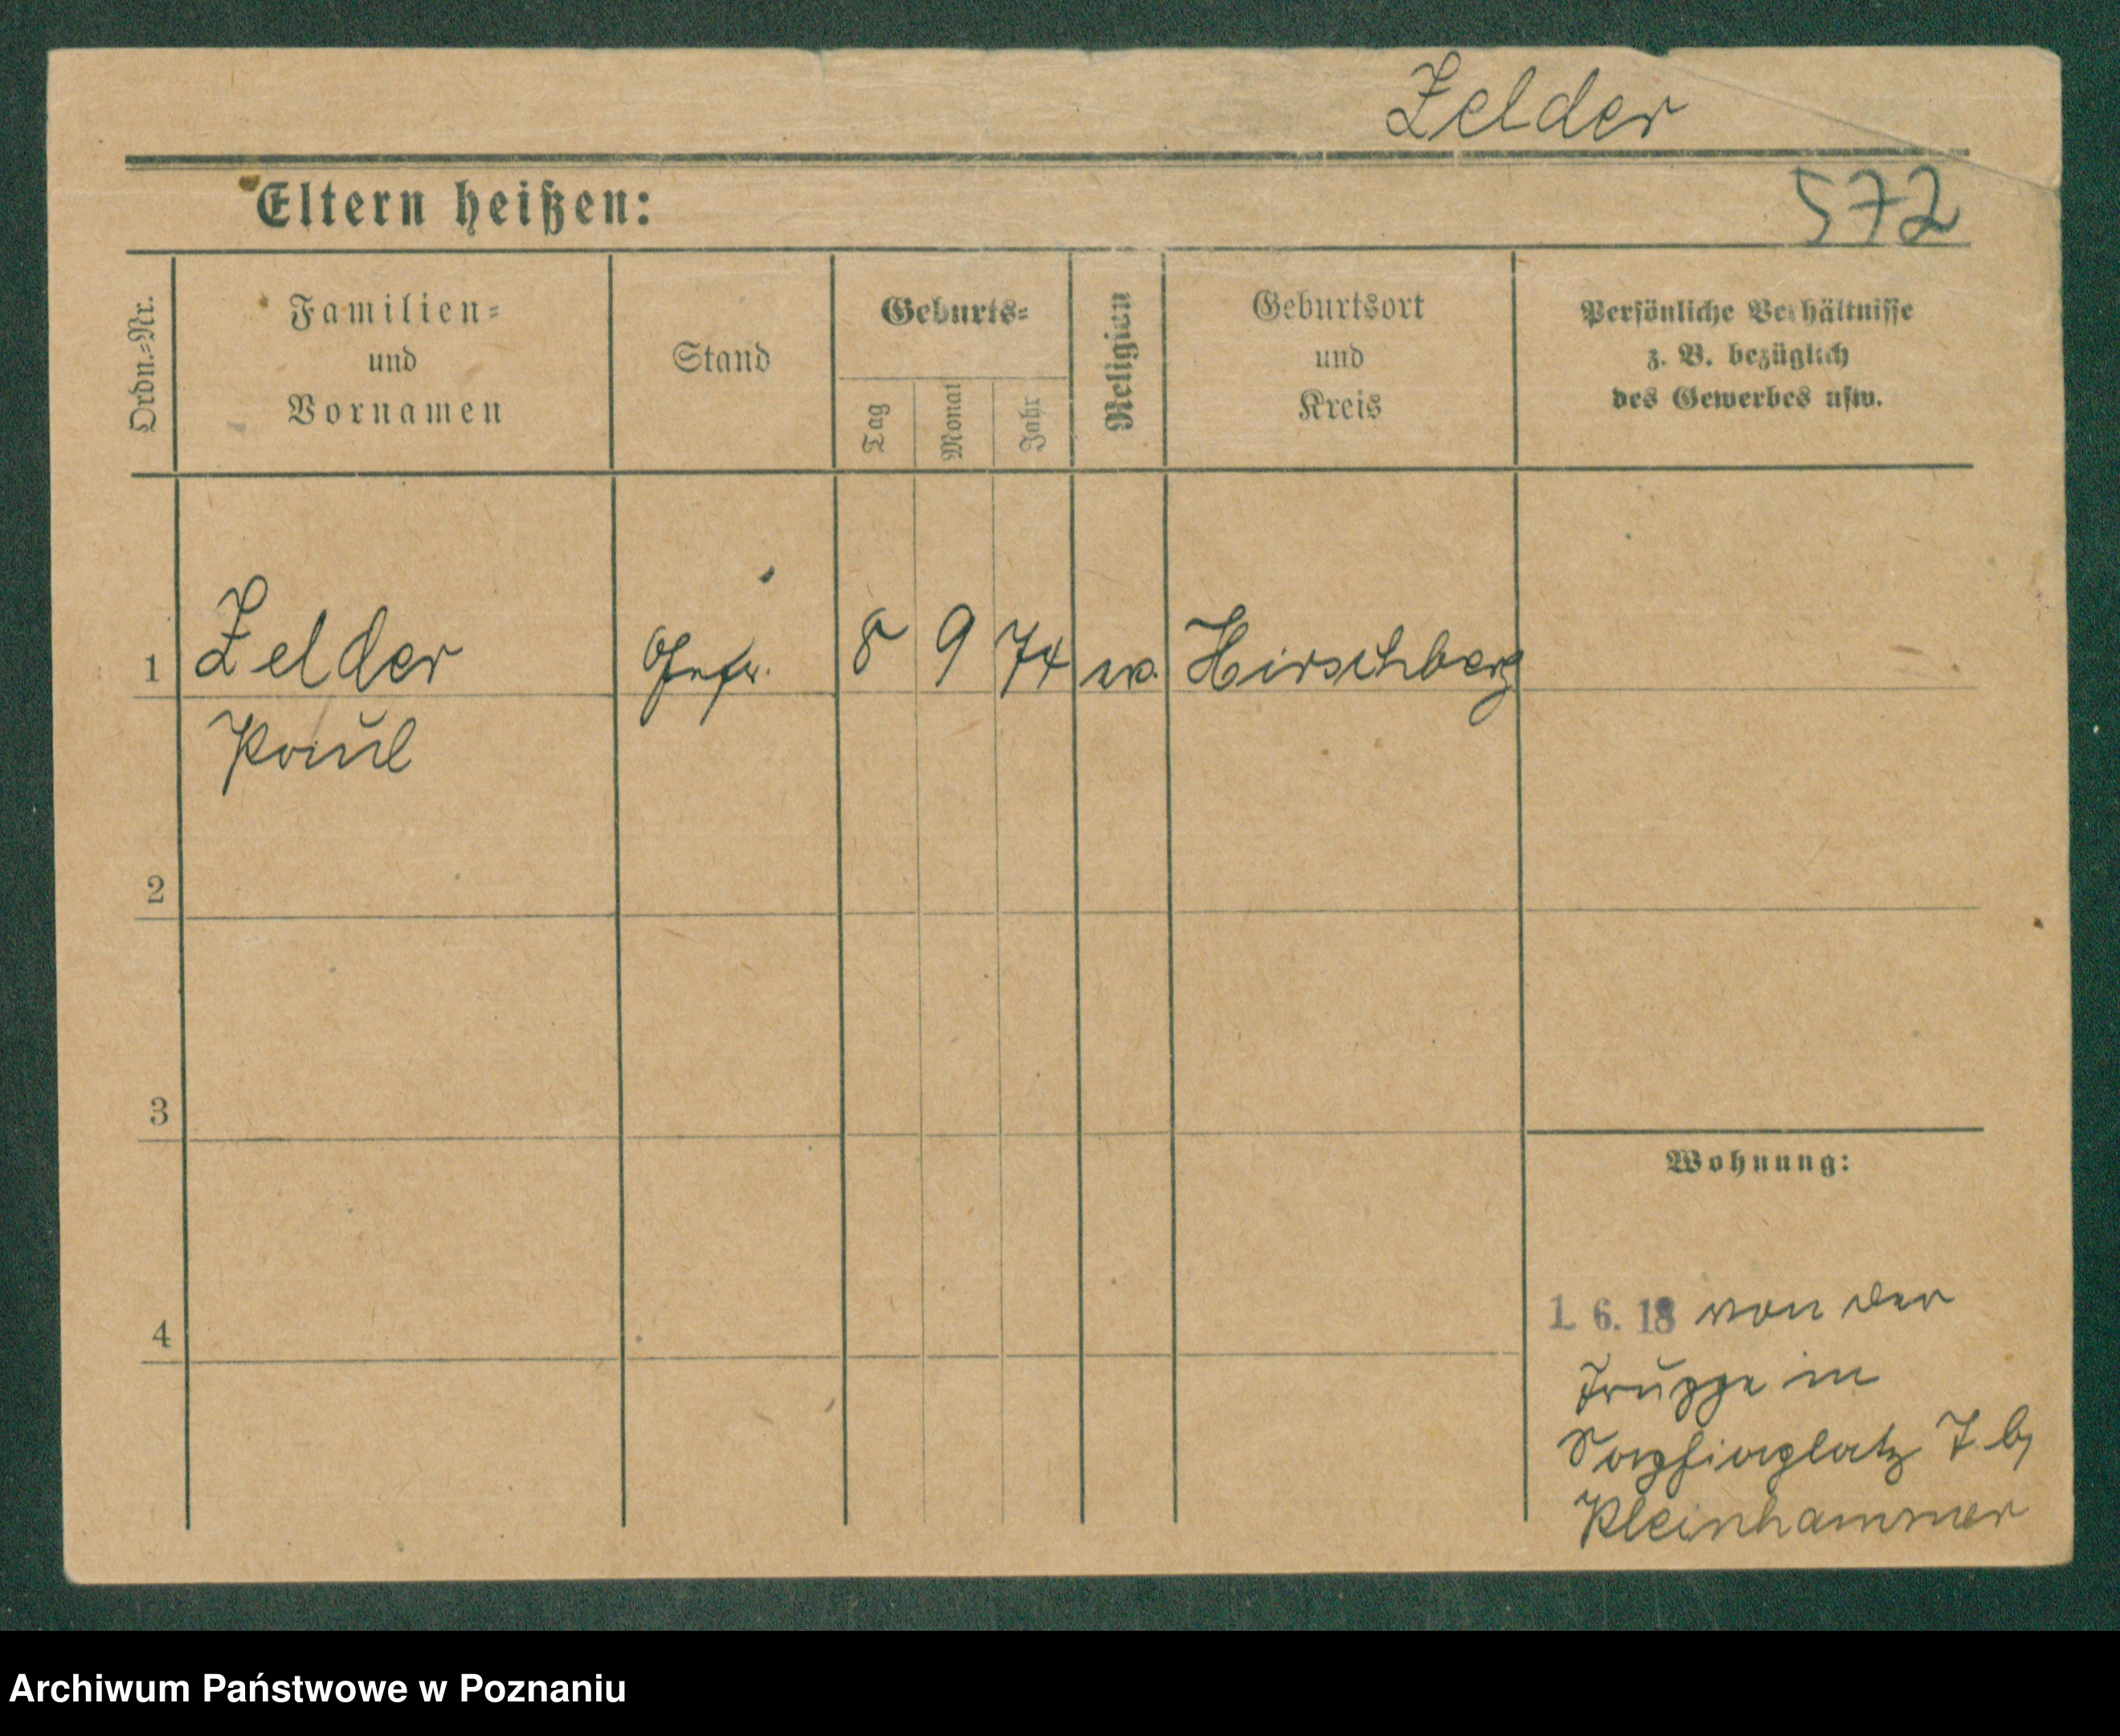 Zelder
Eltern heißen:
572
Ordn.-Nr.
Familien-
und
Vornamen
Stand
Geburts-
Tag
Monat
Jahr
Religion
Geburtsort
und
Kreis
Persönliche Verhältnisse
z. B. bezüglich
des Gewerbes usw.
1 Zelder 8 9 74 Hirschberg
Paul
2
3
4
Wohnung:
1. 6. 18 von der
Truppe in
Sapfiaplatz 7 b/
Kleinhammer
Archiwum Państwowe w Poznaniu